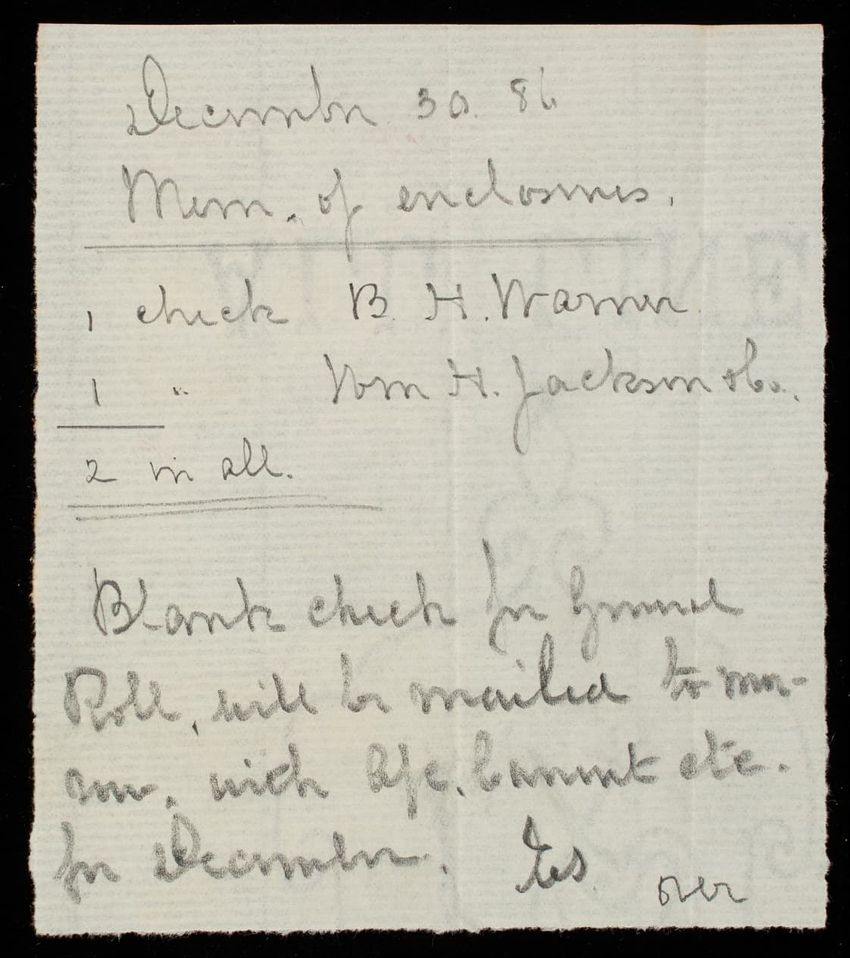 December 30. 86
Mem. of enclosures.
1 check B. H. Warner
1 " Wm H. Jackson &Co.
2 in all.
Blank check for General
Roll, will be mailed to mor-
row, with Ofc. Current etc.
for December.
over